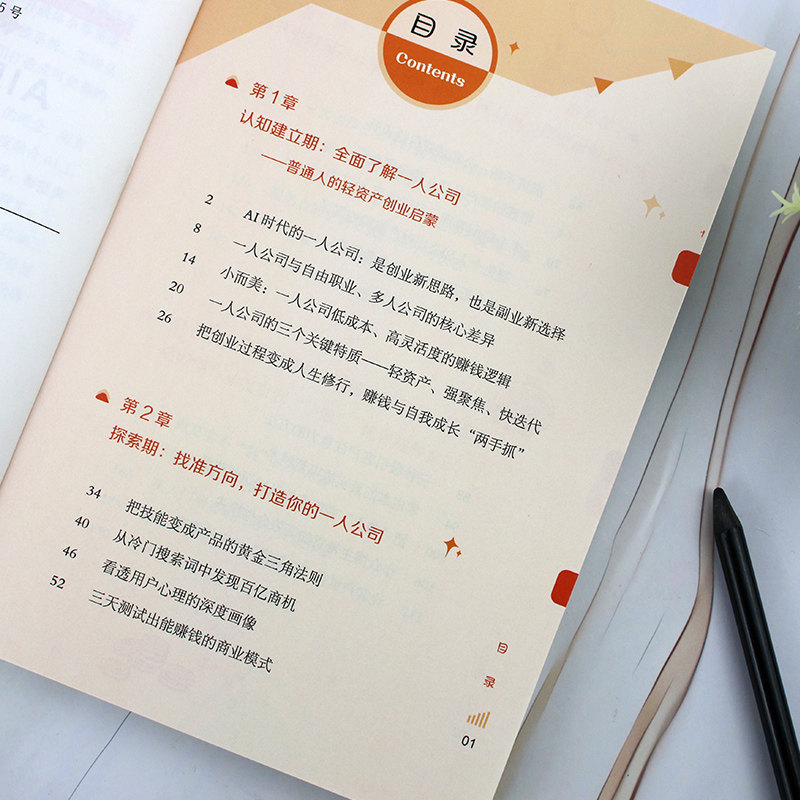 5号
目录
Contents
第1章
认知建立期：全面了解一人公司
——普通人的轻资产创业启蒙
2 AI时代的一人公司：是创业新思路，也是副业新选择
8 一人公司与自由职业、多人公司的核心差异
14 小而美：一人公司低成本、高灵活度的赚钱逻辑
20 一人公司的三个关键特质——轻资产、强聚焦、快迭代
26 把创业过程变成人生修行，赚钱与自我成长“两手抓”
第2章
探索期：找准方向，打造你的一人公司
34 把技能变成产品的黄金三角法则
40 从冷门搜索词中发现百亿商机
46 看透用户心理的深度画像
52 三天测试出能赚钱的商业模式
目录
01